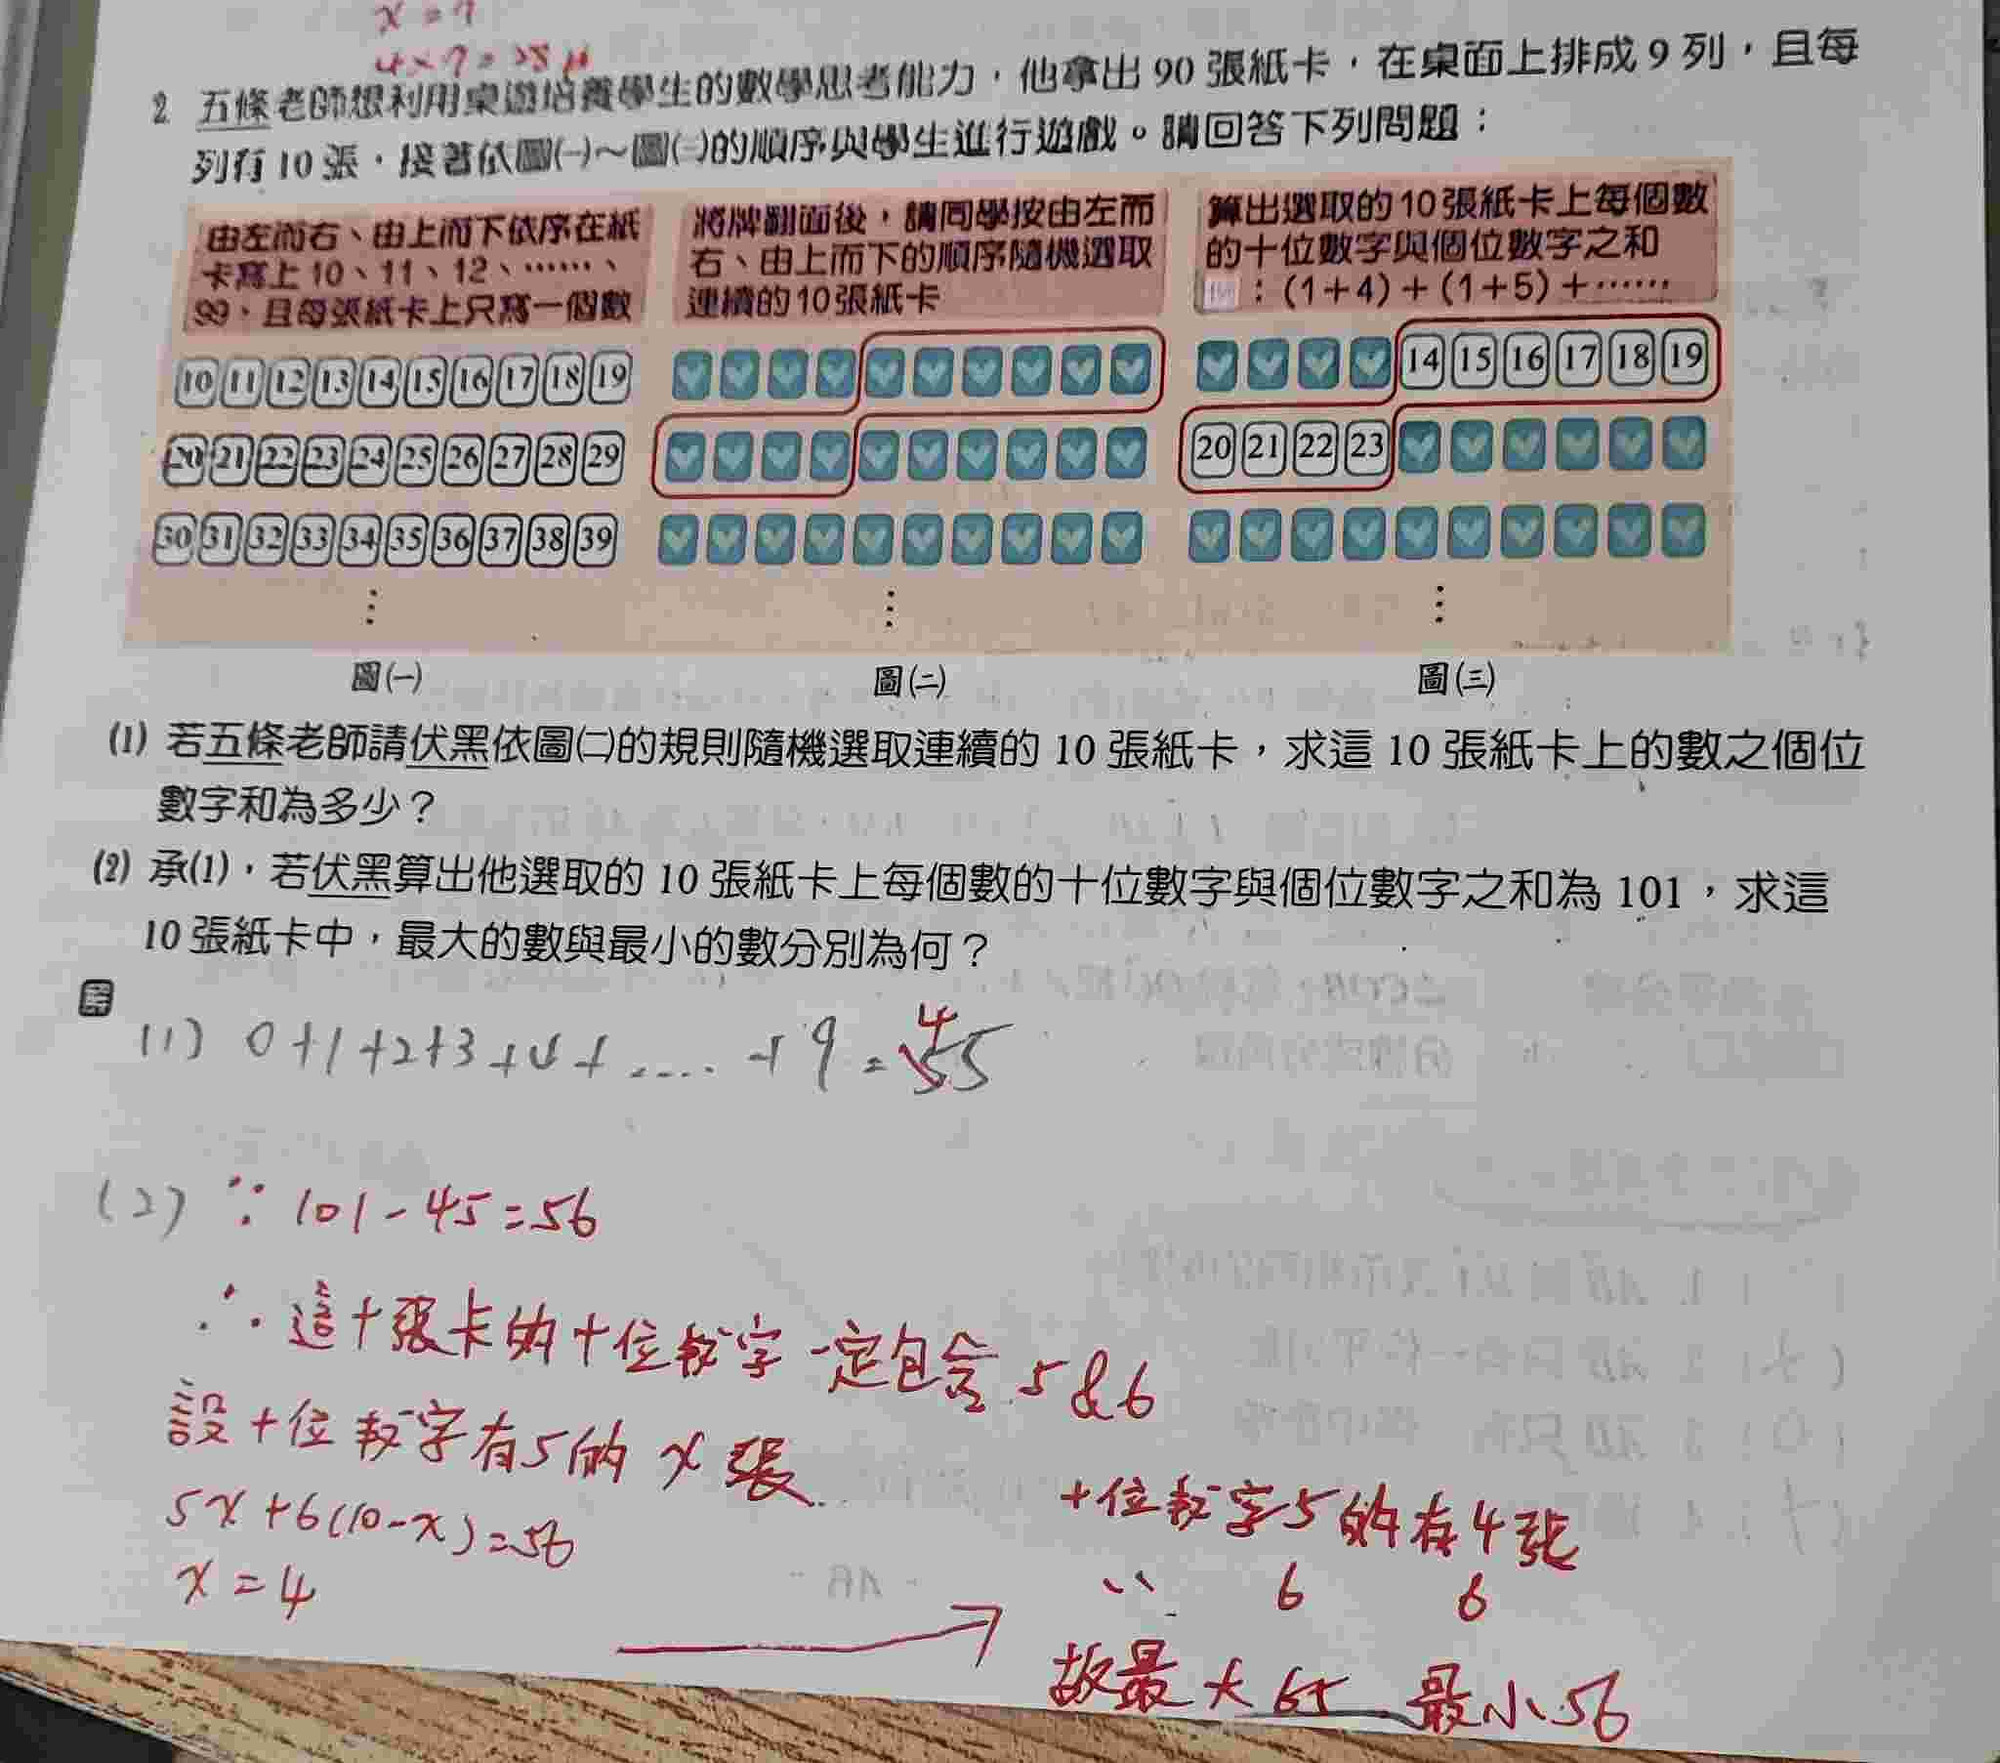 x = 7
4×7=28
2 五條老師想利用桌遊培養學生的數學思考能力，他拿出 90 張紙卡，在桌面上排成 9 列，且每
列有 10 張，接著依圖㈠～圖㈢的順序與學生進行遊戲。請回答下列問題：
由左而右、由上而下依序在紙
卡寫上 10、11、12、……、
99，且每張紙卡上只寫一個數
將牌翻面後，請同學按由左而
右、由上而下的順序隨機選取
連續的 10 張紙卡
算出選取的 10 張紙卡上每個數
的十位數字與個位數字之和
：(1＋4)＋(1＋5)＋……
10 11 12 13 14 15 16 17 18 19
14 15 16 17 18 19
20 21 22 23 24 25 26 27 28 29
20 21 22 23
30 31 32 33 34 35 36 37 38 39
⋮ ⋮ ⋮
圖㈠ 圖㈡ 圖㈢
(1) 若五條老師請伏黑依圖㈡的規則隨機選取連續的 10 張紙卡，求這 10 張紙卡上的數之個位
數字和為多少？
(2) 承(1)，若伏黑算出他選取的 10 張紙卡上每個數的十位數字與個位數字之和為 101，求這
10 張紙卡中，最大的數與最小的數分別為何？
(1) 0+1+2+3+4+.....+9=55
4
(2) ∵ 101-45=56
∴ 這十張卡的十位數字一定包含 5&6
設十位數字有5的 x 張
5x+6(10-x)=56
x=4
十位數字5的有4張
〃 6 6
故最大 65 最小 56